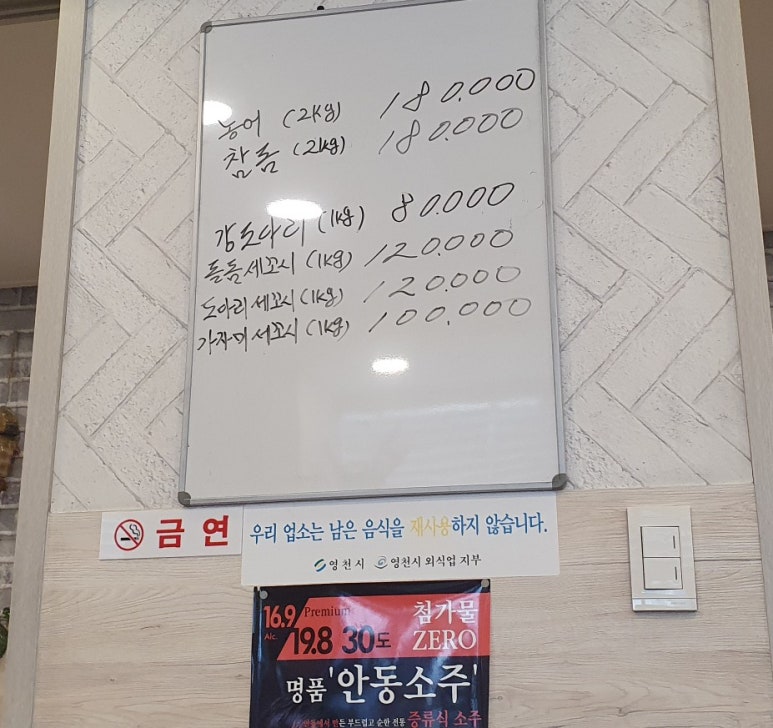 농어 (2kg) 180.000
참돔 (2kg) 180.000
감도다리 (1kg) 80.000
돌돔세꼬시 (1kg) 120.000
도다리세꼬시 (1kg) 120.000
가자미세꼬시 (1kg) 100.000
금연
우리 업소는 남은 음식을 재사용하지 않습니다.
영천시 영천시 외식업 지부
16.9 Premium 첨가물
Alc. 19.8 30도 ZERO
명품 '안동소주'
안동에서 만든 부드럽고 순한 전통 증류식 소주